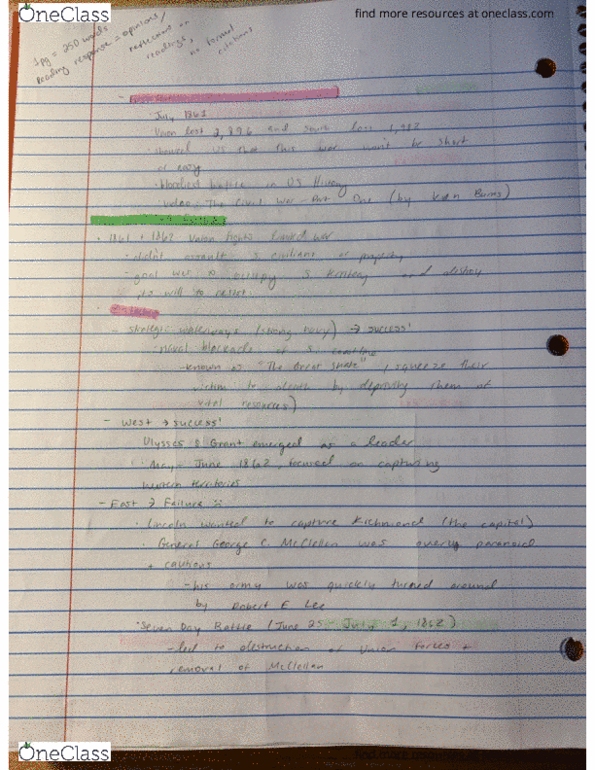 OneClass
find more resources at oneclass.com
1pg = 250 words
Reading response = opinions/
reflections on
readings,
no formal
citations
July 1861
Union lost 2,896 and South lost 1,982
showed US that this war won't be short
or easy
bloodied battle in US History
video: The Civil War - Part One (by Ken Burns)
1861 + 1862 Union fights limited war
didn't assault S. civilians or property
goal was to S. military and destroy
its will to resist
strategic waterways (strong navy) → success!
naval blockade of S. coastline
known as "The Great Snake" (squeeze their
victim to death by depriving them of
vital resources)
- West → success!
Ulysses Grant emerged as a leader
May - June 1862, focused on capturing
western territories
- East → Failure :(
Lincoln wanted to capture Richmond (the capital)
General George C. McClellan was overly paranoid
+ cautious
- his army was quickly turned around
by Robert E Lee
Seven Day Battle (June 25 - July 1, 1862)
- led to destruction of Union forces +
removal of McClellan
OneClass
find more resources at oneclass.com